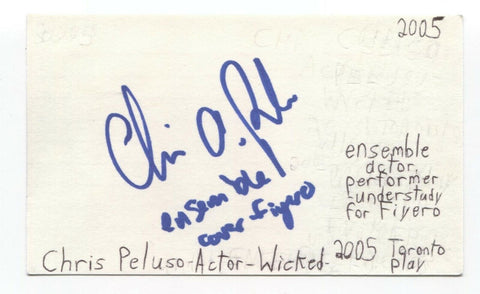 2005
Chris A. Pelu
ensemble
cover-Fiyero
ensemble
actor,
performer
-understudy
for Fiyero
Chris Peluso-Actor-Wicked-
2005 Toronto
play